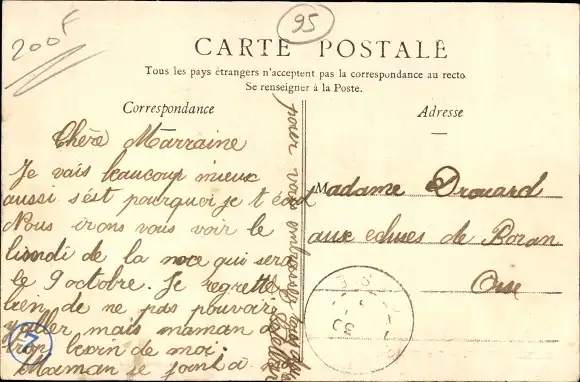 200F
95
CARTE POSTALE
Tous les pays étrangers n'acceptent pas la correspondance au recto.
Se renseigner à la Poste.
Correspondance
Adresse
Chère Marraine
Je vais beaucoup mieux
aussi s'ést pourquoi je t'écris
Nous irons vous voir le
lundi de la noce qui sera
le 9 octobre. Je regrette
bien de ne pas pouvoir
y aller mais maman a
trop besoin de moi.
Maman se joint à
pour vous embrasser
Madame Drouard
aux écluses de Boran
Oise
7